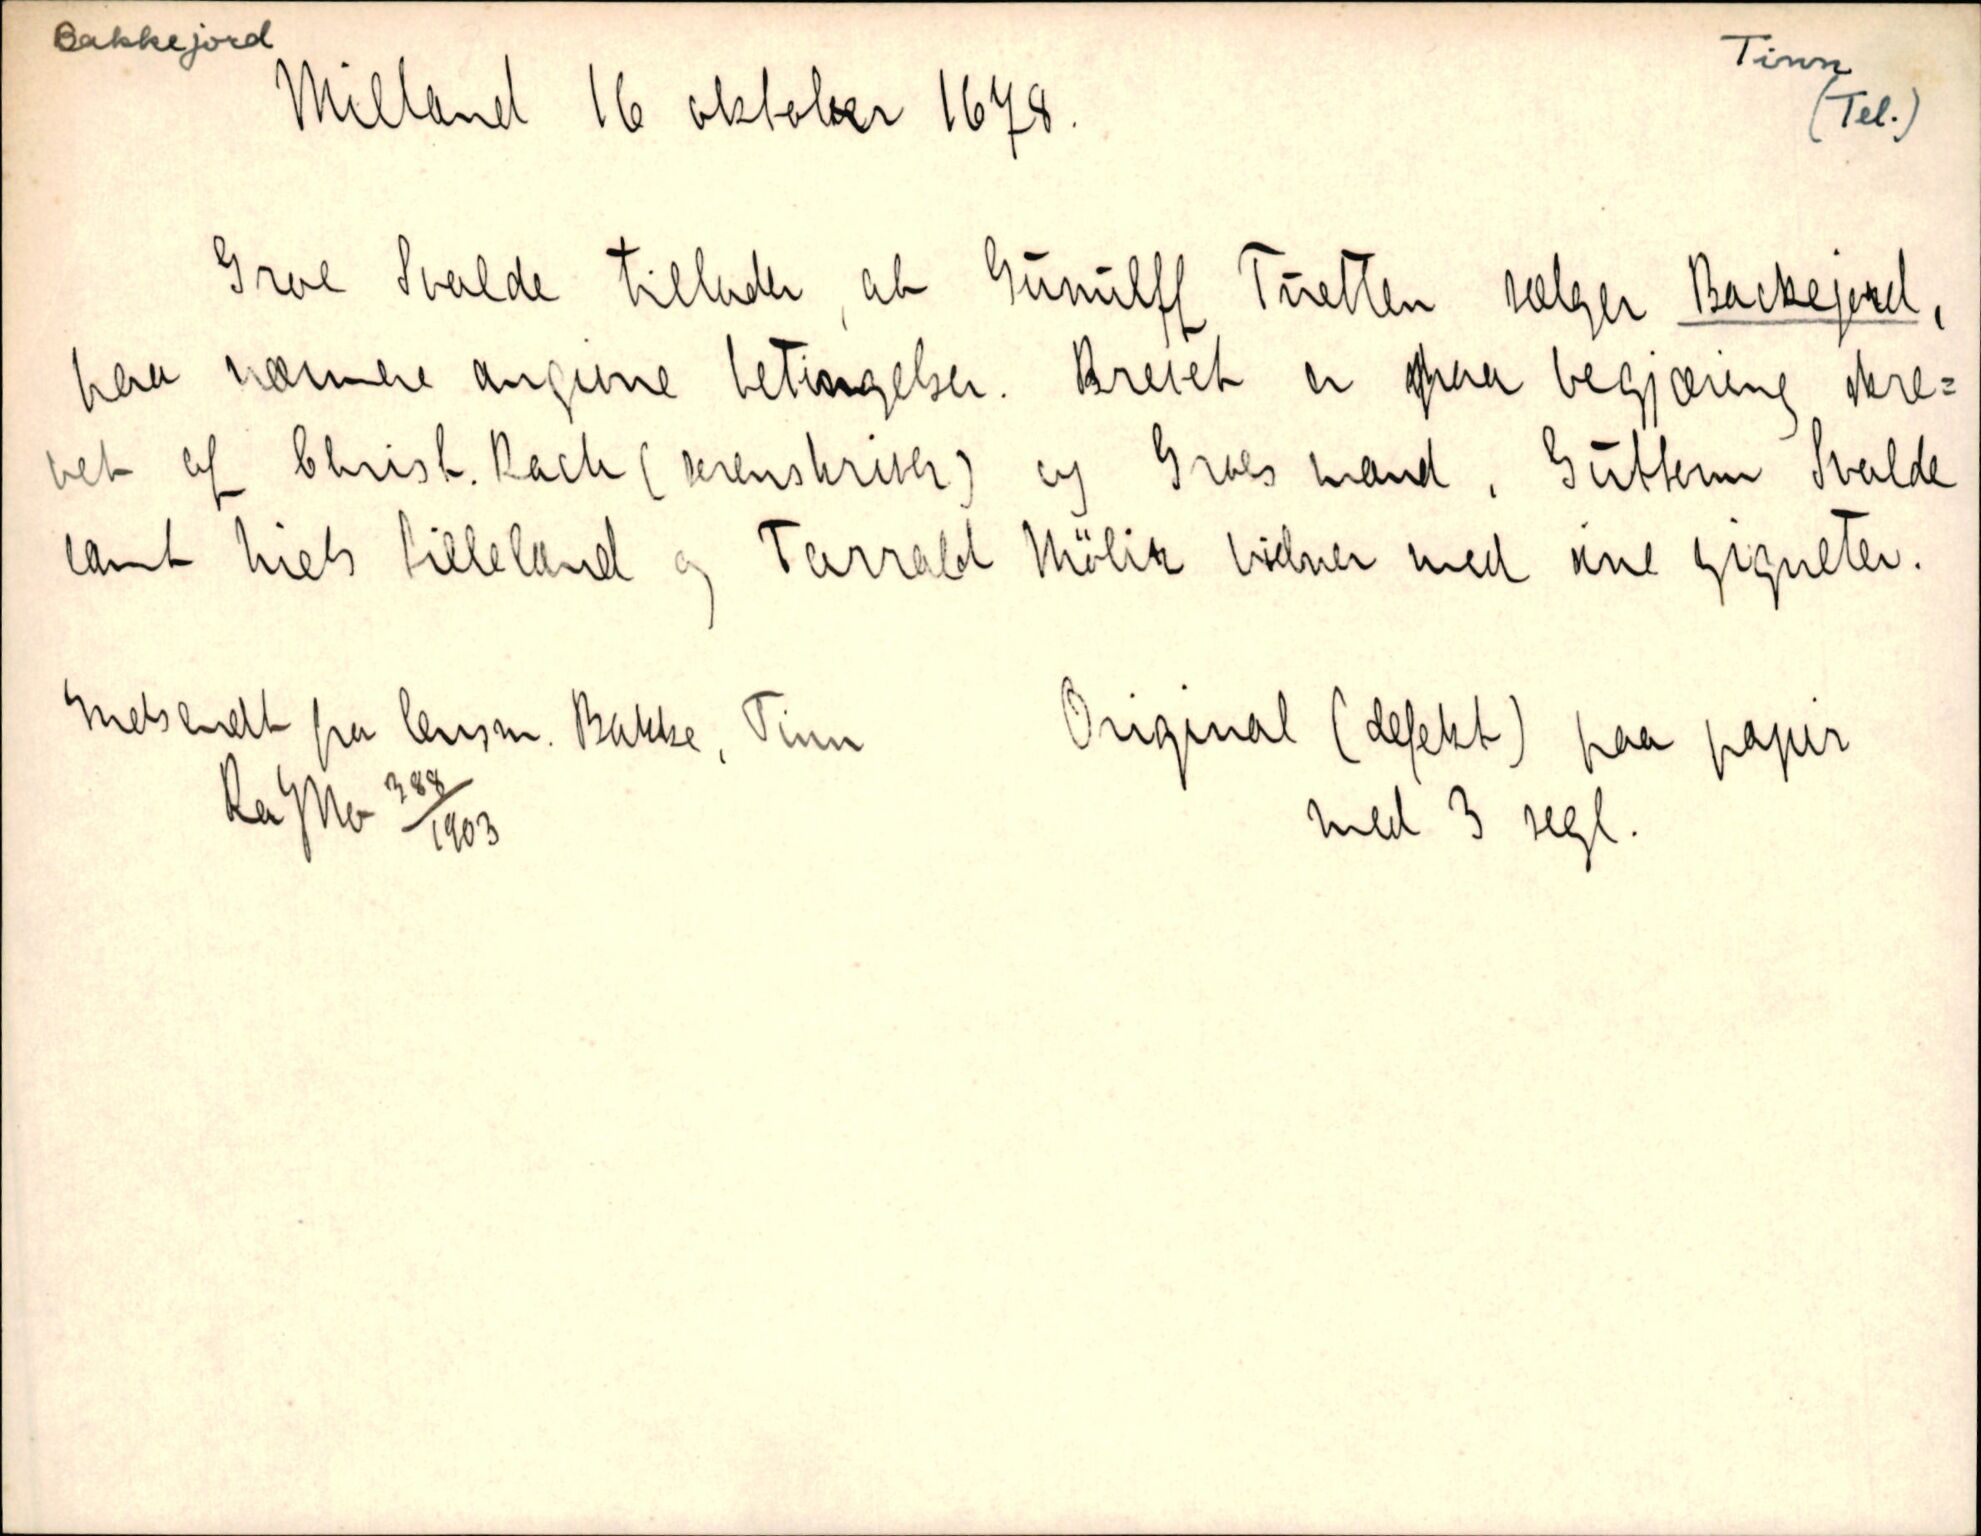 Bakkejord
Tinn
(Tel.)
Milland 16 oktober 1678.
Groe Svalde tillader, at Gūnūlff Tūetten sælger Backejord,
paa nærmere angivne betingelser. Brevet er paa begjæring skre=
vet af Christ. Rach (sorenskriver) og Groes mand, Gūttorm Svalde
samt Niels Lilleland og Tarrald Mölir vidner med sine signeter.
Indsendt fra lensm. Bakke, Tinn
Original (defekt) paa papir
388/1903
med 3 segl.